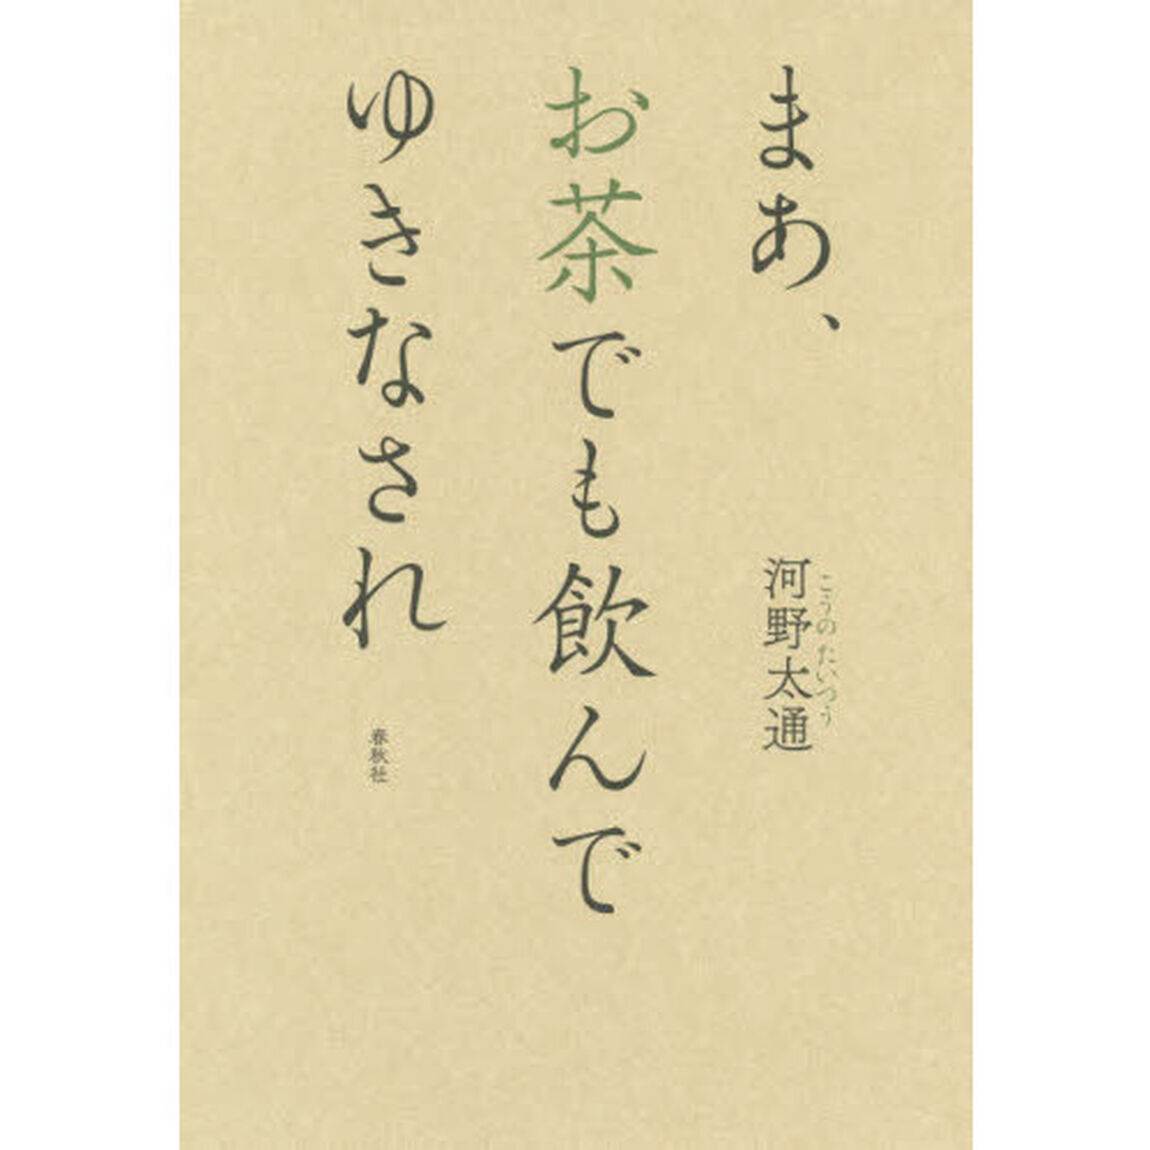 まあ、
お茶でも飲んで
ゆきなされ
こうの たいつう
河野太通
春秋社